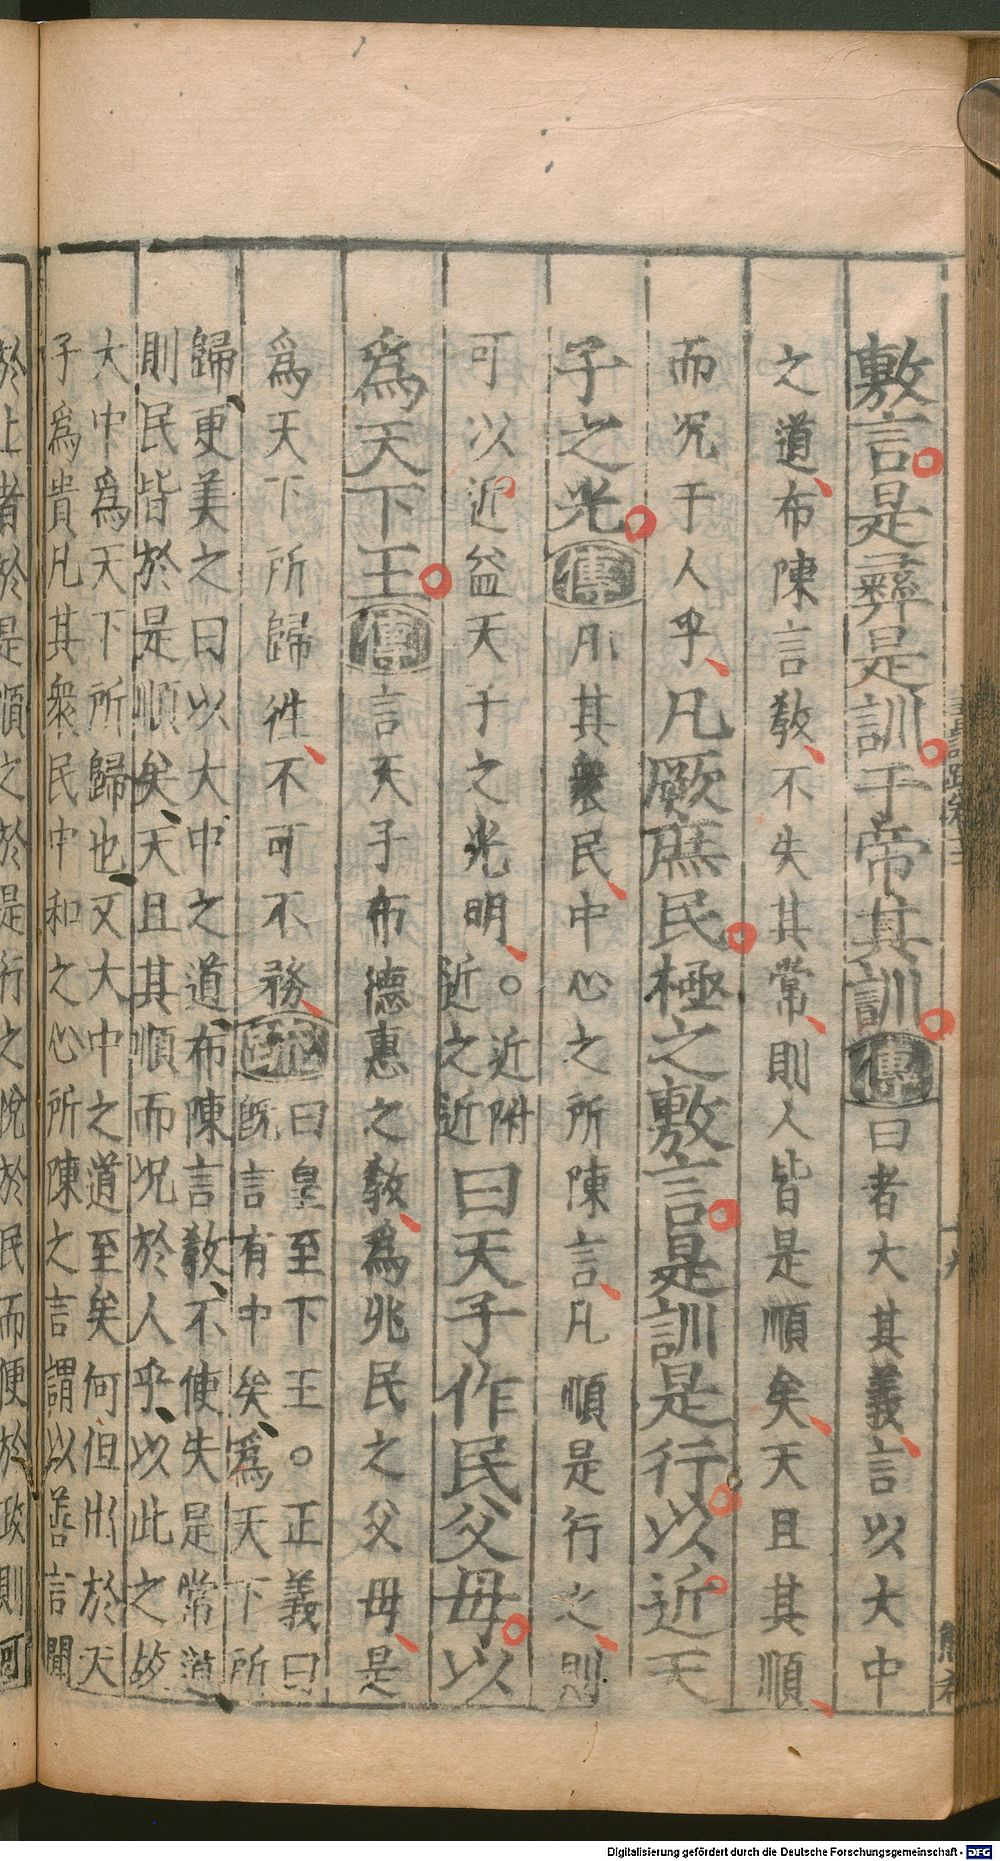 敷言是彛是訓于帝其訓傳曰者大其義言以大中
之道布陳言敎不失其常則人皆是順矣天且其順
而况于人乎凡厥庶民極之敷言是訓是行以近天
子之光傳凡其衆民中心之所陳言凡順是行之則
可以近益天子之光明。近附近之近曰天子作民父母以
爲天下王傳言天子布德惠之敎爲兆民之父母是
爲天下所歸徃不可不務疏曰皇至下王。正義曰
旣言有中矣爲天下所
歸更美之曰以大中之道布陳言敎不使失是常道
則民皆於是順矣天且其順而况於人乎以此之故
大中爲天下所歸也又大中之道至矣何但出於天
子爲貴凡其衆民中和之心所陳之言謂以善言聞
於上者於是順之於是行之悅於民而便於政則可
Digitalisierung gefördert durch die Deutsche Forschungsgemeinschaft - DFG